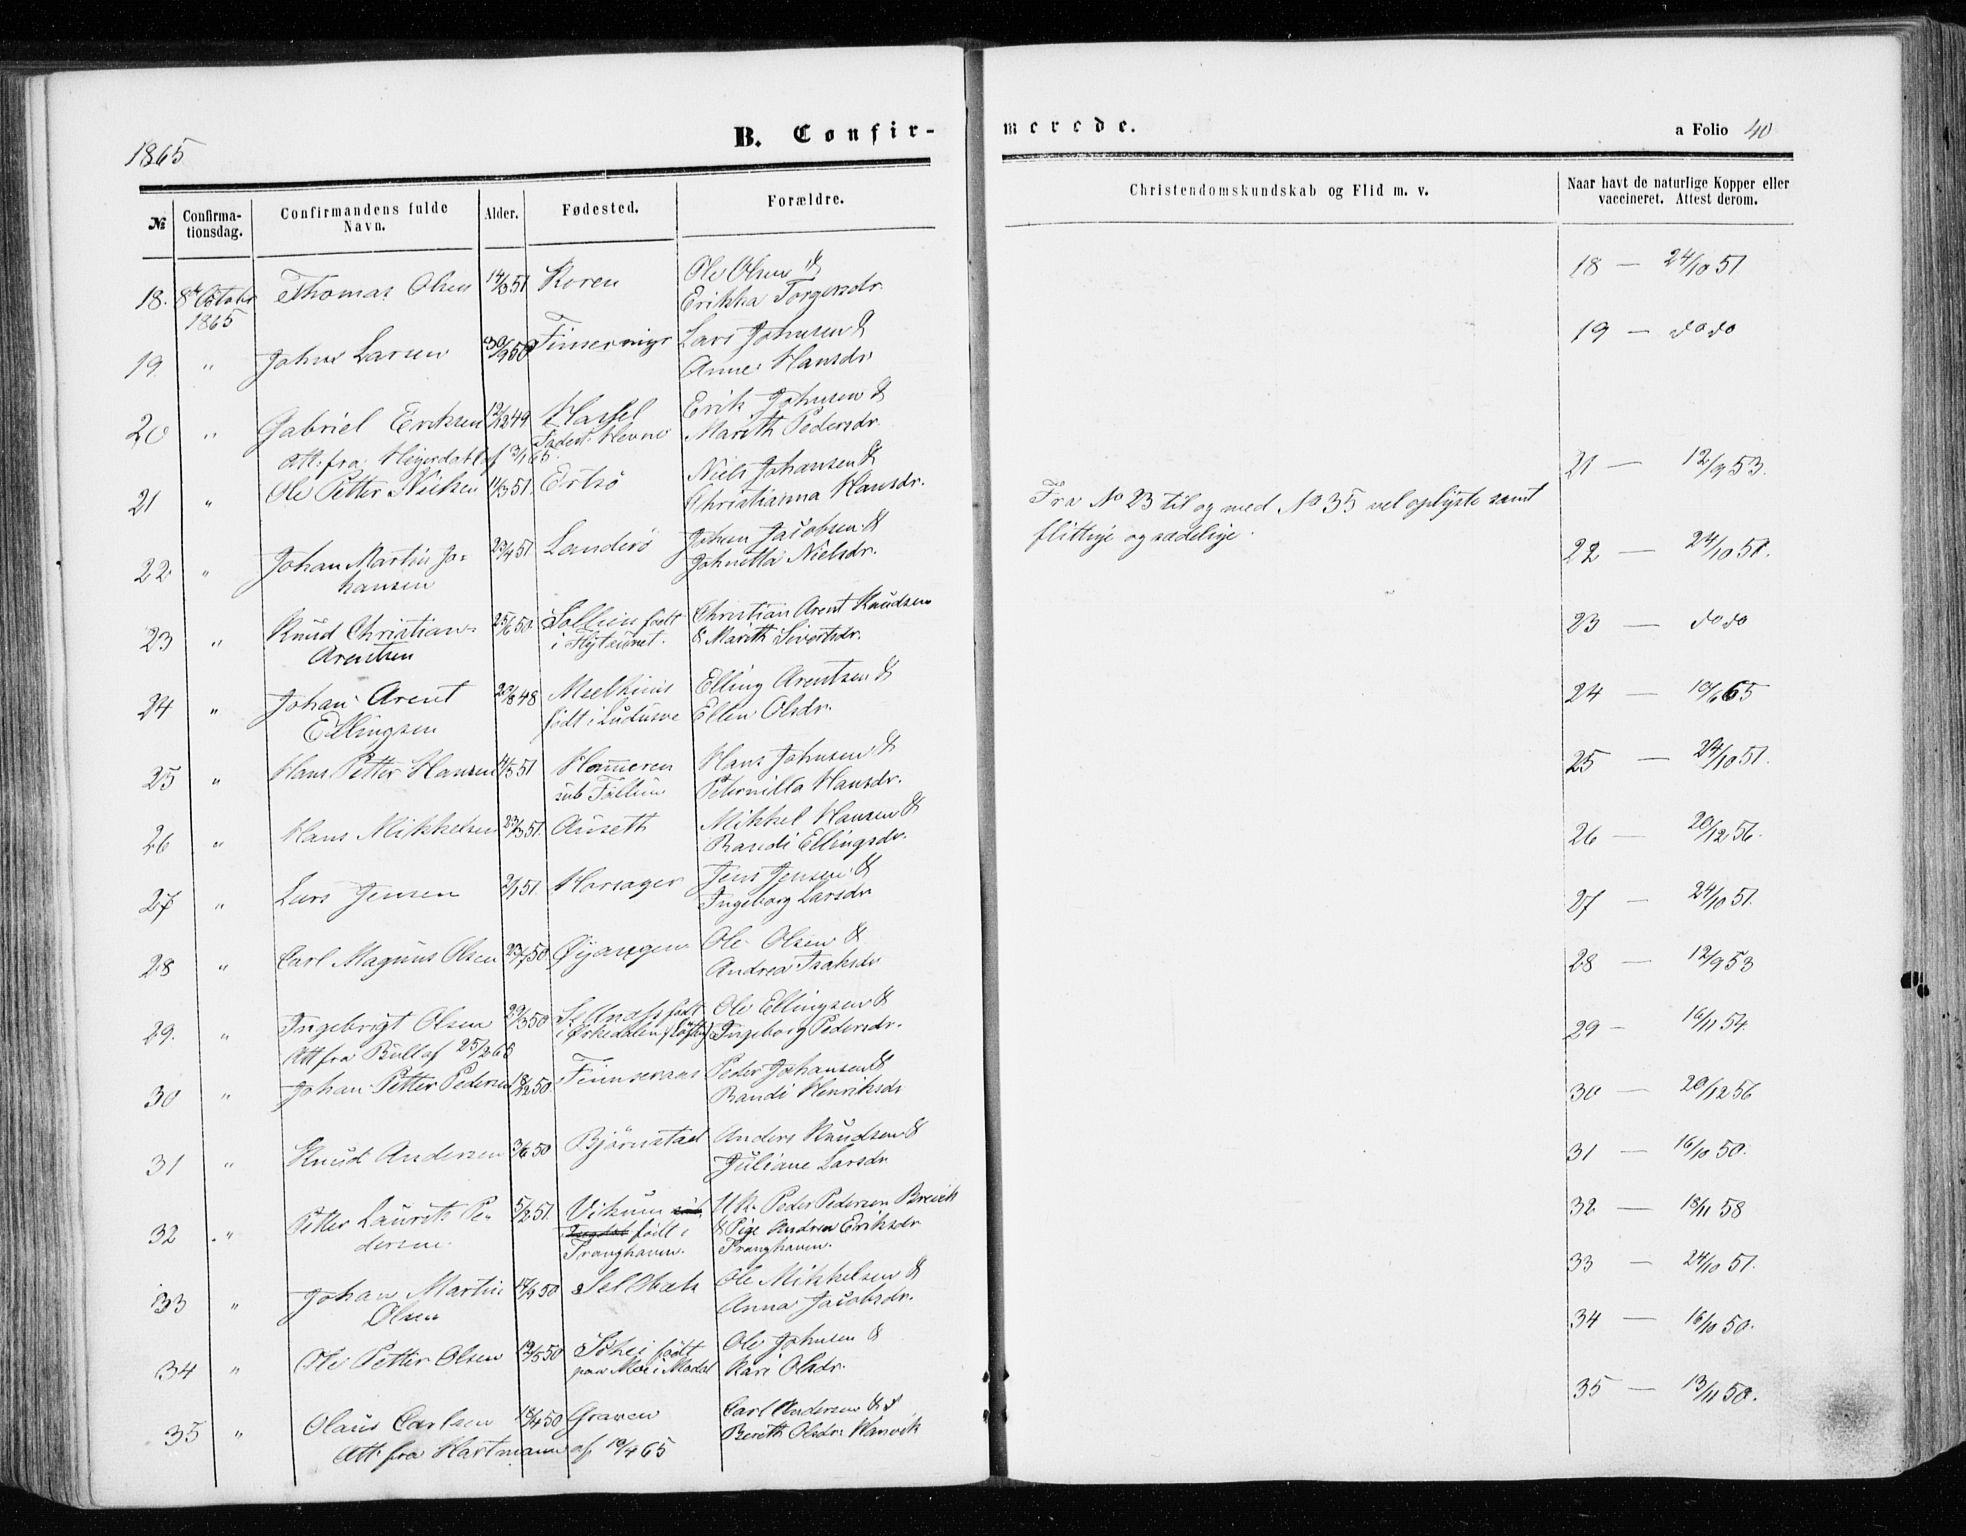 1865
B. Confir-
merede.
a Folio 40
№
Confirma-
tionsdag.
Confirmandens fulde
Navn.
Alder.
Fødested.
Forældre.
Christendomskundskab og Flid m. v.
Naar havt de naturlige Kopper eller
vaccineret. Attest derom.
18. 8de October Thomas Olsen 14/3 51 Koren Ole Olsen &
1865 Erikka Torgersdr.
18 — 24/10 51
19 " Johan Larsen 30/9 50 Lars Johnsen &
Anne Hansdr
19 — do do
20 " Gabriel Eriksen 12/12 49 Hassel Erik Johnsen &
Att: fra Heyerdahl af 3/1 65. Marith Pedersdr.
21 " Ole Petter Nielsen 11/3 51 Ertsø Niels Johansen &
Christianna Hansdr.
21 — 12/9 53.
22 " Johan Martin Jo- 23/4 51 Landsrø Johan Jacobsen &
hansen Johnetta Nielsdr.
22 — 24/10 51.
23 " Knud Christian 25/6 50 Sollien født Christian Arent Knudsen
Arentsen i & Marith Sivertsdr.
23 — do do
24 " Johan Arent 20/8 48 født i Elling Arentsen &
Ellingsen Ellen Olsdr.
24 — 10/6 65
25 " Hans Petter Hansen 4/5 51 Hammeren Hans Johnsen &
sub Peternilla Hansdr.
25 — 24/10 51.
26 " Hans Mikkelsen 23/3 51. Auseth Mikkel Hansen &
Randi Ellingsdr.
26 — 20/12 56.
27 " Lars Jensen 2/1 51. Horsager Jens Jensen &
Ingeborg Larsdr
27 — 24/10 51.
28 " Carl Magnus Olsen 25/7 50 Øyangen Ole Olsen &
Andrea Isaksdr
28 — 12/9 53
29. " Ingebrigt Olsen 29/3 50 Sellnæss født Ole Ellingsen &
i Ørkedalen Ingeborg Pedersdr.
Att fra Bull af 25/2 66
29 — 16/11 54.
30 " Johan Petter Pedersen 18/12 50. Peder Johansen &
Randi Henriksdr
30 — 20/12 56
31 " Knud Andersen 3/6 50 Bjørnstad Anders Knudsen &
Juliane Larsdr
31 — 16/10 50.
32 " Petter Laurits Pe- 5/2 51. Vikum Uk. Peder Pedersen Brevik
dersen. født i & Pige Andrea Eriksdr
Tranghaven. Tranghaven.
32 — 18/11 58
33 " Johan Martin 14/9 50 Selbæk Ole Mikkelsen &
Olsen Anna Jacobsdr.
33 — 24/10 51.
34 " Ole Petter Olsen 19/5 50 født Ole Johnsen &
paa Moe i Kari Olsdr.
34 — 16/10 50.
35 " Olaus Carlsen 18/4 50 Graven Carl Andersen &
Att. fra Hartmann af 19/4 65 Bereth Olsdr. Hanvik
35 — 13/11 50.
Fra No 23 til og med No 35 vel oplyste samt
flittige og sædelige.